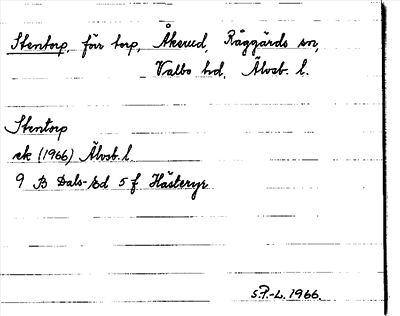 Stentorp, för torp, Åkerud, Råggärds sn,
Valbo hd, Älvsb. l.
Stentorp
ek (1966) Älvsb. l.
9 B Dals-Ed 5 f Hästeryr
S.P.-L. 1966.